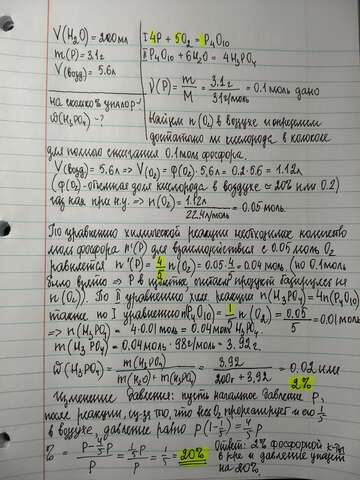 V(H₂O) = 200мл
m(P) = 3.1г
V(возд) = 5.6л
на сколько % упадет р - ?
ω̃(H₃PO₄) - ?
I 4P + 5O₂ = P₄O₁₀
II P₄O₁₀ + 6H₂O = 4H₃PO₄
ν(P) = m/M = 3.1г/31г/моль = 0.1 моль дано
Найдем n(O₂) в воздухе и определим
достаточно ли кислорода в колоколе
для полного сжигания 0.1моль фосфора.
V(возд) = 5.6л ⇒ V(O₂) = φ(O₂)·5.6л = 0.2·5.6 = 1.12л
(φ(O₂) - объемная доля кислорода в воздухе ≈ 20% или 0.2)
газ как при н.у. ⇒ n(O₂) = 1.12л/22.4л/моль = 0.05 моль.
По уравнению химической реакции необходимое количество
моля фосфора n'(P) для взаимодействия с 0.05 моль O₂
равняется n'(P) = 4/5 n(O₂) = 0.05·4/5 = 0.04 моль (но 0.1моль
было взято ⇒ P в избытке, считаем продукт базируясь на
n(O₂)). По II уравнению хим. реакции n(H₃PO₄) = 4n(P₄O₁₀)
также по I уравнению nP₄O₁₀ = 1/5 n(O₂) = 0.05/5 = 0.01 моль
⇒ n(H₃PO₄) = 4·0.01 = 0.04моль H₃PO₄.
m(H₃PO₄) = 0.04моль·98г/моль = 3.92г.
ω̃(H₃PO₄) = m(H₃PO₄)/m(H₂O) + m(H₃PO₄) = 3.92/200г + 3.92 = 0.02 или 2%
Изменение давление: пусть начальное давление P,
после реакции, из-за того, что весь O₂ прореагирует и его 1/5
в воздухе, давление равно P(1-1/5) = 4/5P
% = P - 4/5P / P = 1/5P / P = 1/5 = 20%
Ответ: 2% фосфорной к-ты
в р-ре и давление упадет
на 20%.